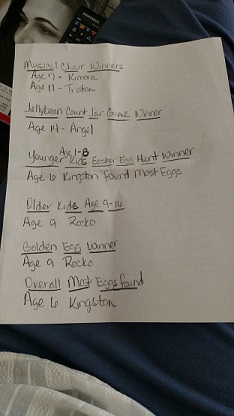 Musical Chair Winners
Age 7 - Kimora
Age 11 - Triston
Jellybean Count Jar Game Winner
Age 14 - Angel
Age 1-8
Younger Kids Easter Egg Hunt Winner
Age 6 Kingston found most Eggs
Older Kids Age 9-16
Age 9 Rocko
Golden Egg Winner
Age 9 Rocko
Overall Most Eggs found
Age 6 Kingston